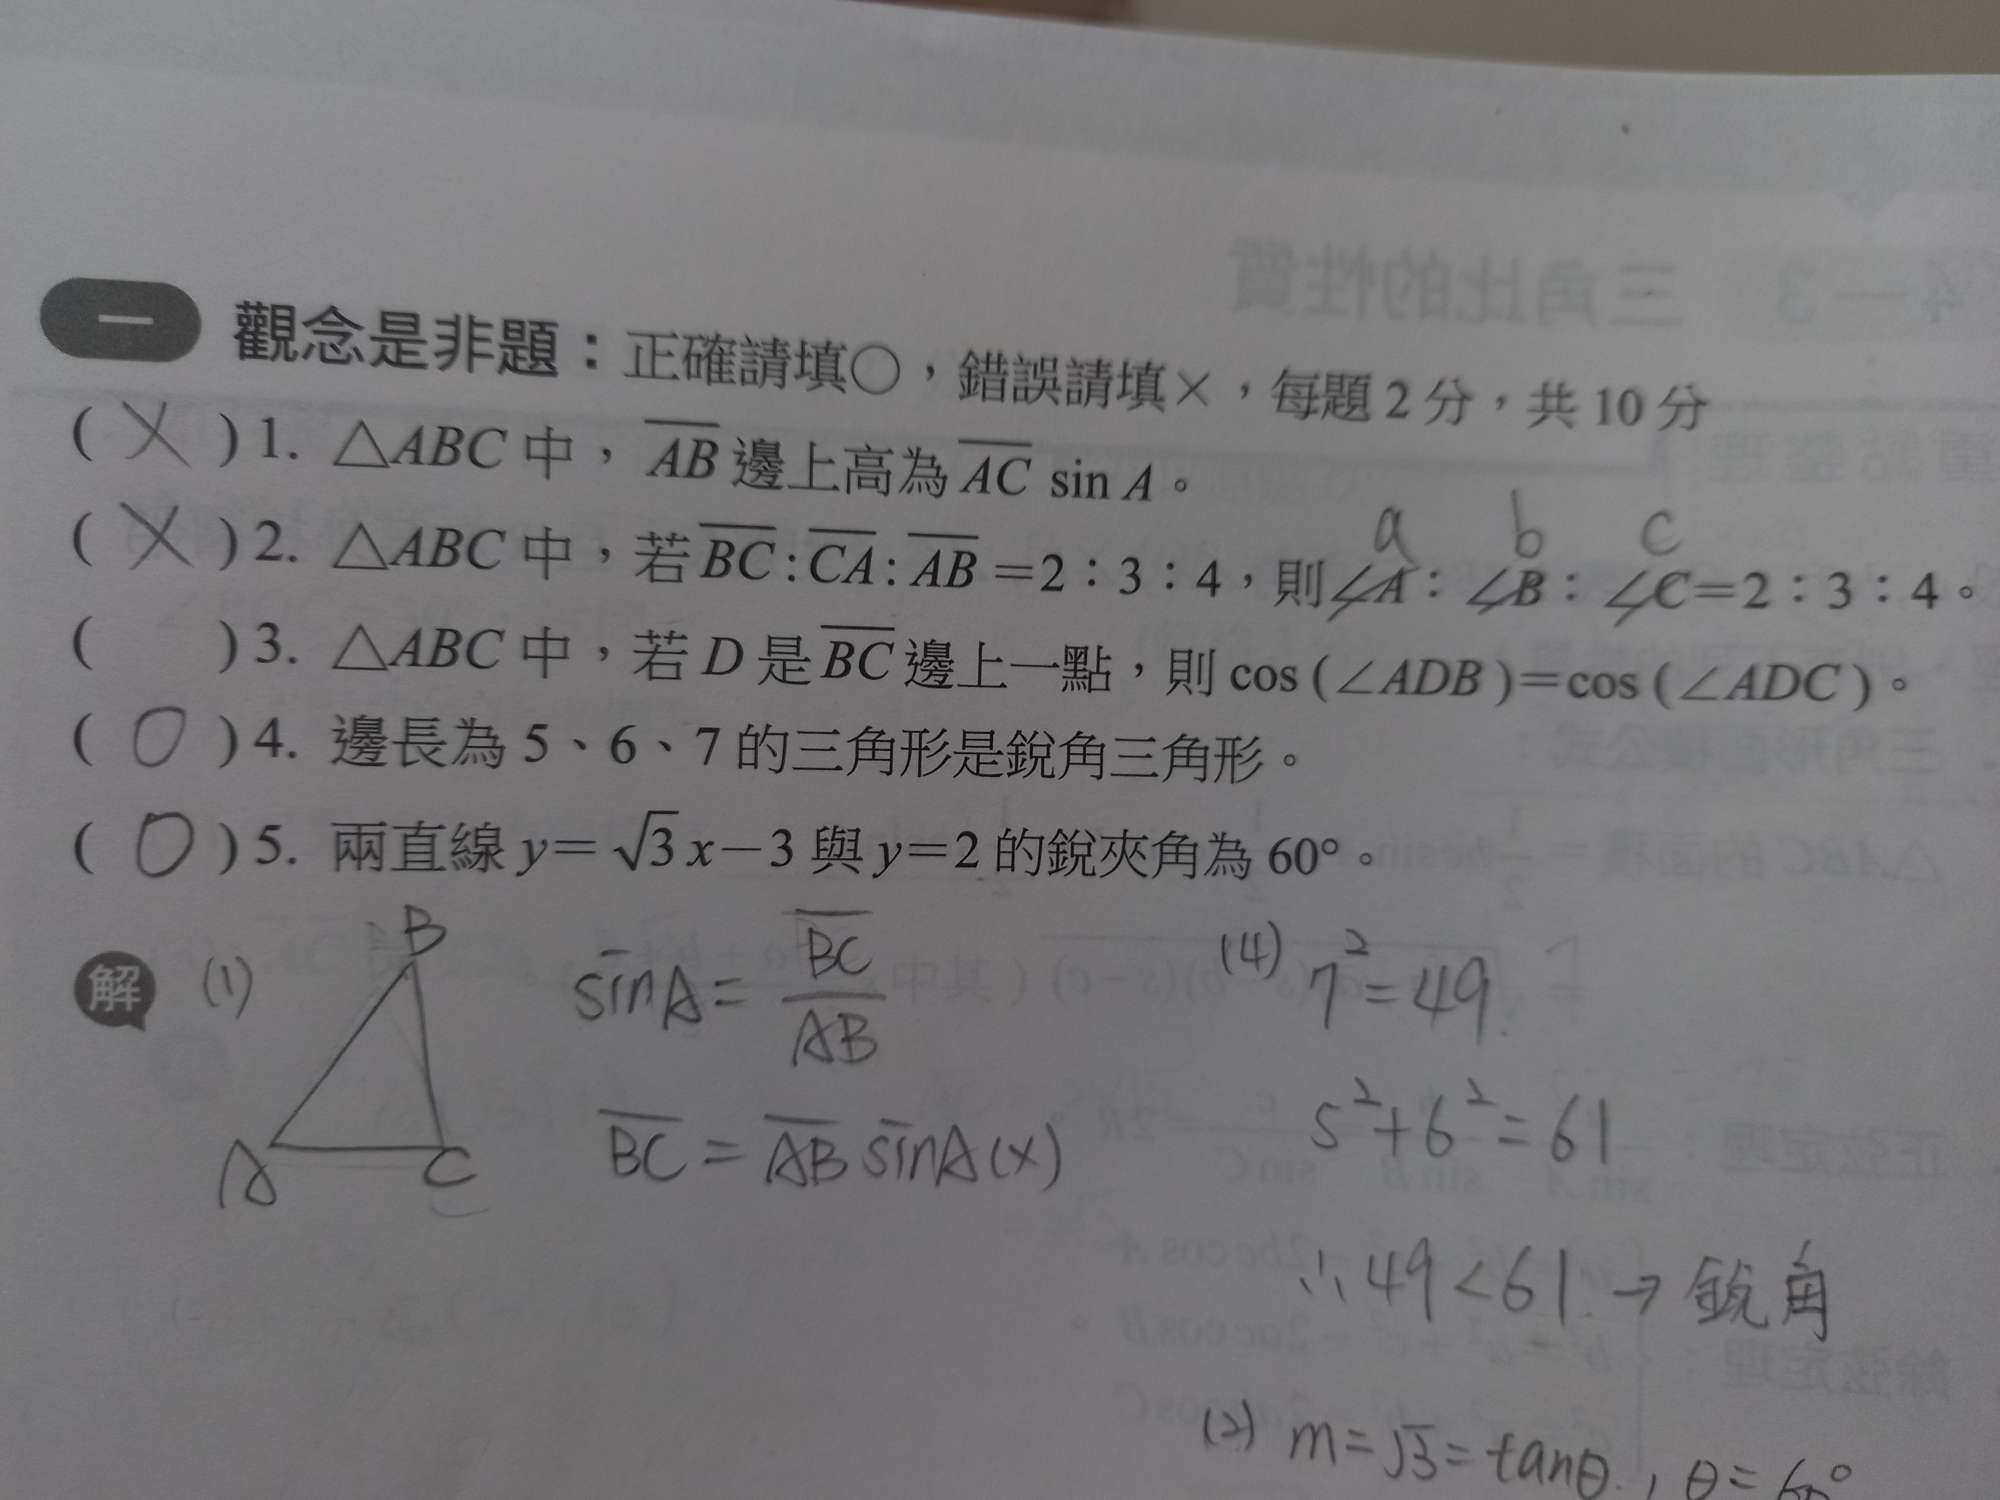 一 觀念是非題：正確請填○，錯誤請填×，每題2分，共10分
( X )1. △ABC中，AB邊上高為AC sin A。
( X )2. △ABC中，若BC:CA:AB=2：3：4，則∠A：∠B：∠C=2：3：4。
a b c
( )3. △ABC中，若D是BC邊上一點，則cos(∠ADB)=cos(∠ADC)。
( O )4. 邊長為5、6、7的三角形是銳角三角形。
( O )5. 兩直線y=√3x－3與y=2的銳夾角為60°。
解 (1)
B
A
C
sinA = BC/AB
BC = AB sinA (x)
(4) 7²=49
5²+6²=61
∴49<61 → 銳角
(2) m=√3=tanθ, θ=60°
4－3 三角比的性質
重點整理
三角形面積公式
△ABC的面積
正弦定理：
餘弦定理：